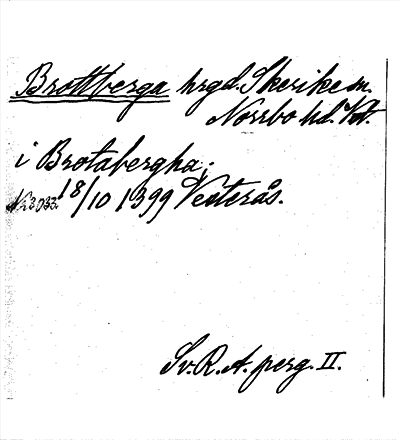 Brottberga hrgd. Skerike sn.
Norrbo hd. Vstm.
i Brotabergha;
N:r 3033. 18/10 1399 Vesterås.
Sv. R. A. perg. II.